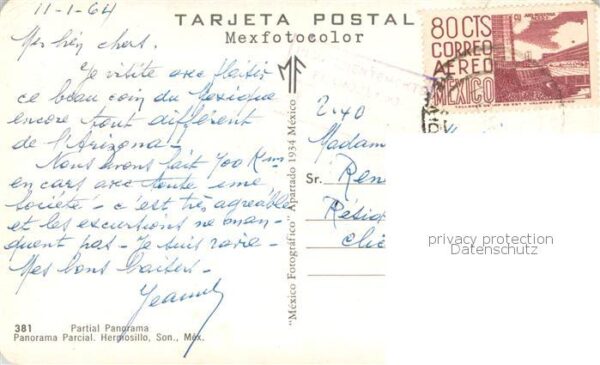 11-1-64
TARJETA POSTAL
Mexfotocolor
Mes bien chers.
Je visite avec plaisir
ce beau coin du Mexique
encore tout différent
de l'Arizona -
Nous avons fait 700 Kms
en cars avec toute une
société - c'est très agréable
et les excursions ne man-
quent pas - Je suis ravie -
Mes bons baisers -
Jeanne
381 Partial Panorama
Panorama Parcial. Hermosillo, Son., Méx.
MF
"México Fotográfico" Apartado 1934 México
80 CTS
CORREO
AEREO
MEXICO
2-40
Madam
Sr. Ren
Résid
privacy protection
Datenschutz